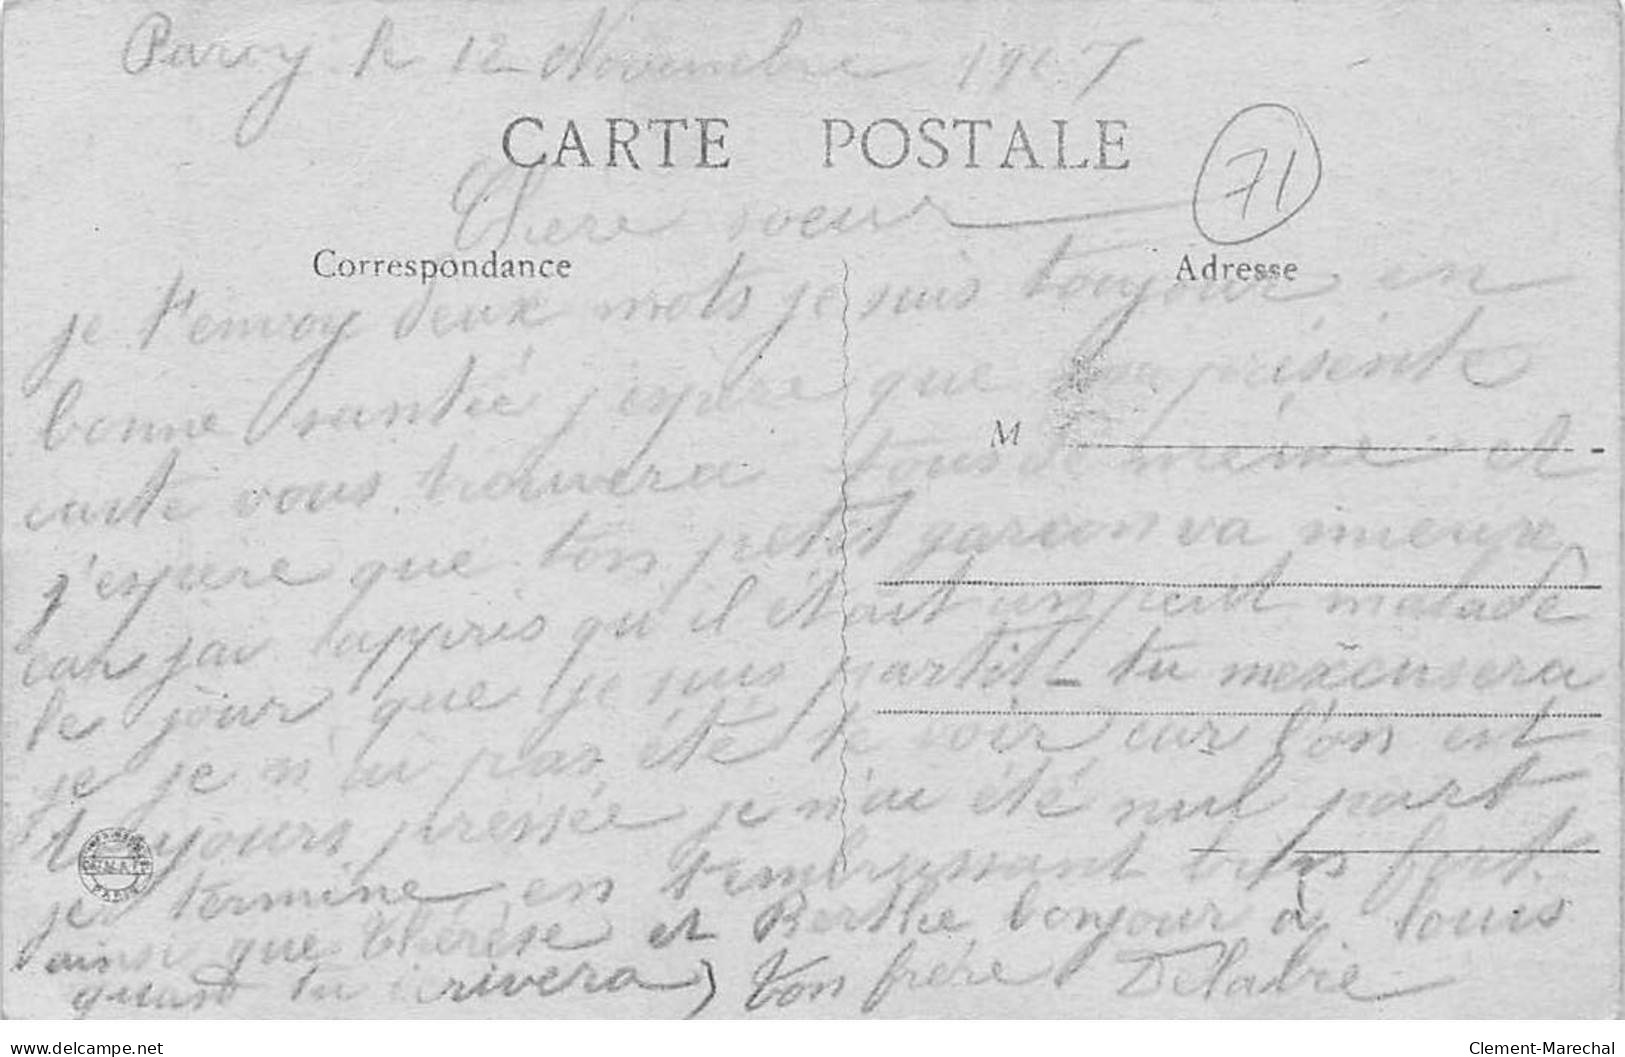 Parcy le 12 Novembre 1907
CARTE POSTALE
71
Chere soeur
Correspondance
Adresse
je t'envoy deux mots je suis toujour en
bonne santée j'espère que ma présente
M
carte vous trouvera tous de même et
j'espère que ton petit garcon va mieux
car jai appris qu'il était un petit malade
le jour que je suis partit tu mexcusera
je je n'ai pas été te voir car l'on est
toujours pressée je n'ai été nul part
je termine en t'embrassant très fort
ainsi que Thérèse et Berthe bonjour à Louis
quant tu arrivera) Ton frére Delabie
PARIS
delcampe.net
Clement-Marechal